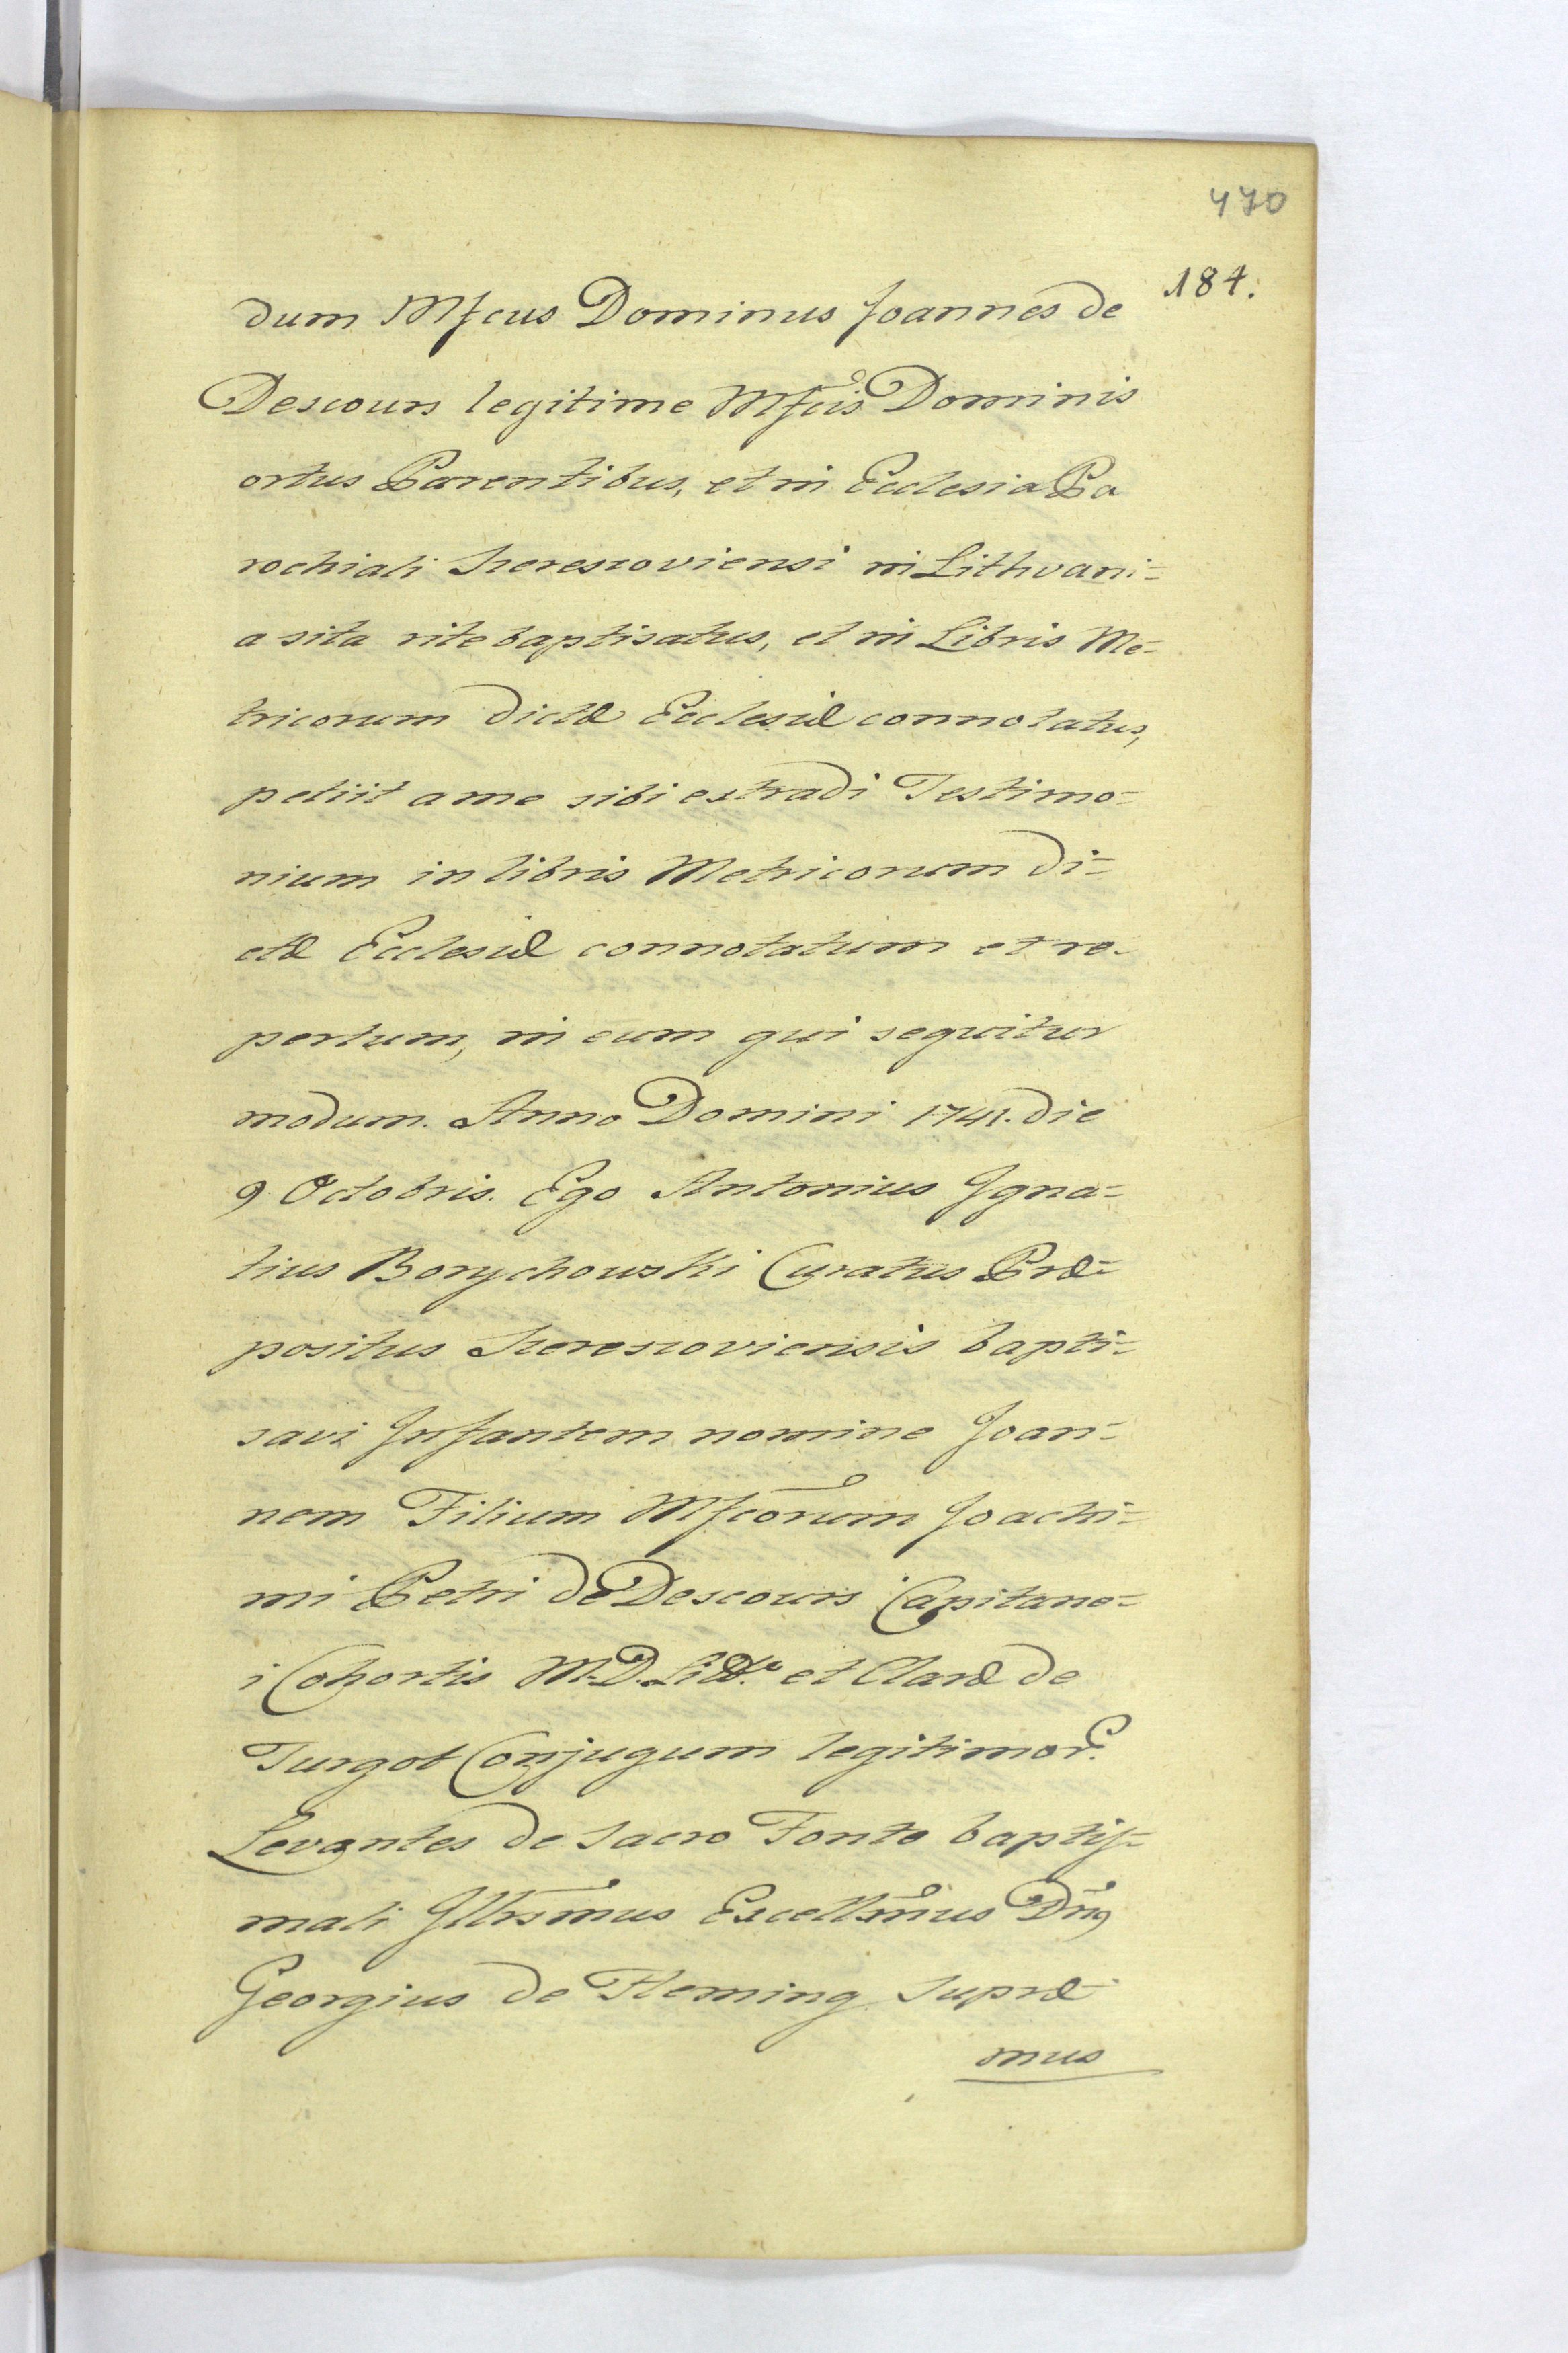 470
184.
dum Mfcus Dominus Joannes de
Descours legitime Mfcis Dominis
ortus Parentibus, et in Ecclesia Pa
rochiali Szereszoviensi in Lithvani=
a sita rite baptisatus, et in Libris Me=
tricorum dictæ Ecclesiæ connotatus,
petiit a me sibi extradi Testimo=
nium in libris Metricorum di=
ctæ Ecclesiæ connotatum et re=
pertum, in eum qui sequitur
modum. Anno Domini 1741. die
9 Octobris. Ego Antonius Igna=
tius Borychowski Curatus Præ=
positus Szereszoviensis bapti=
savi Infantem nomine Joan=
nem Filium Mfcorum Joachi=
mi Petri de Descours Capitane=
i Cohortis M.D. Litt. et Claræ de
Turgot Conjugum legitimor.
Levantes de Sacro Fonte baptis=
mali Illrsmus Excellsmus Dnus
Georgius de Fleming Supræ
mus